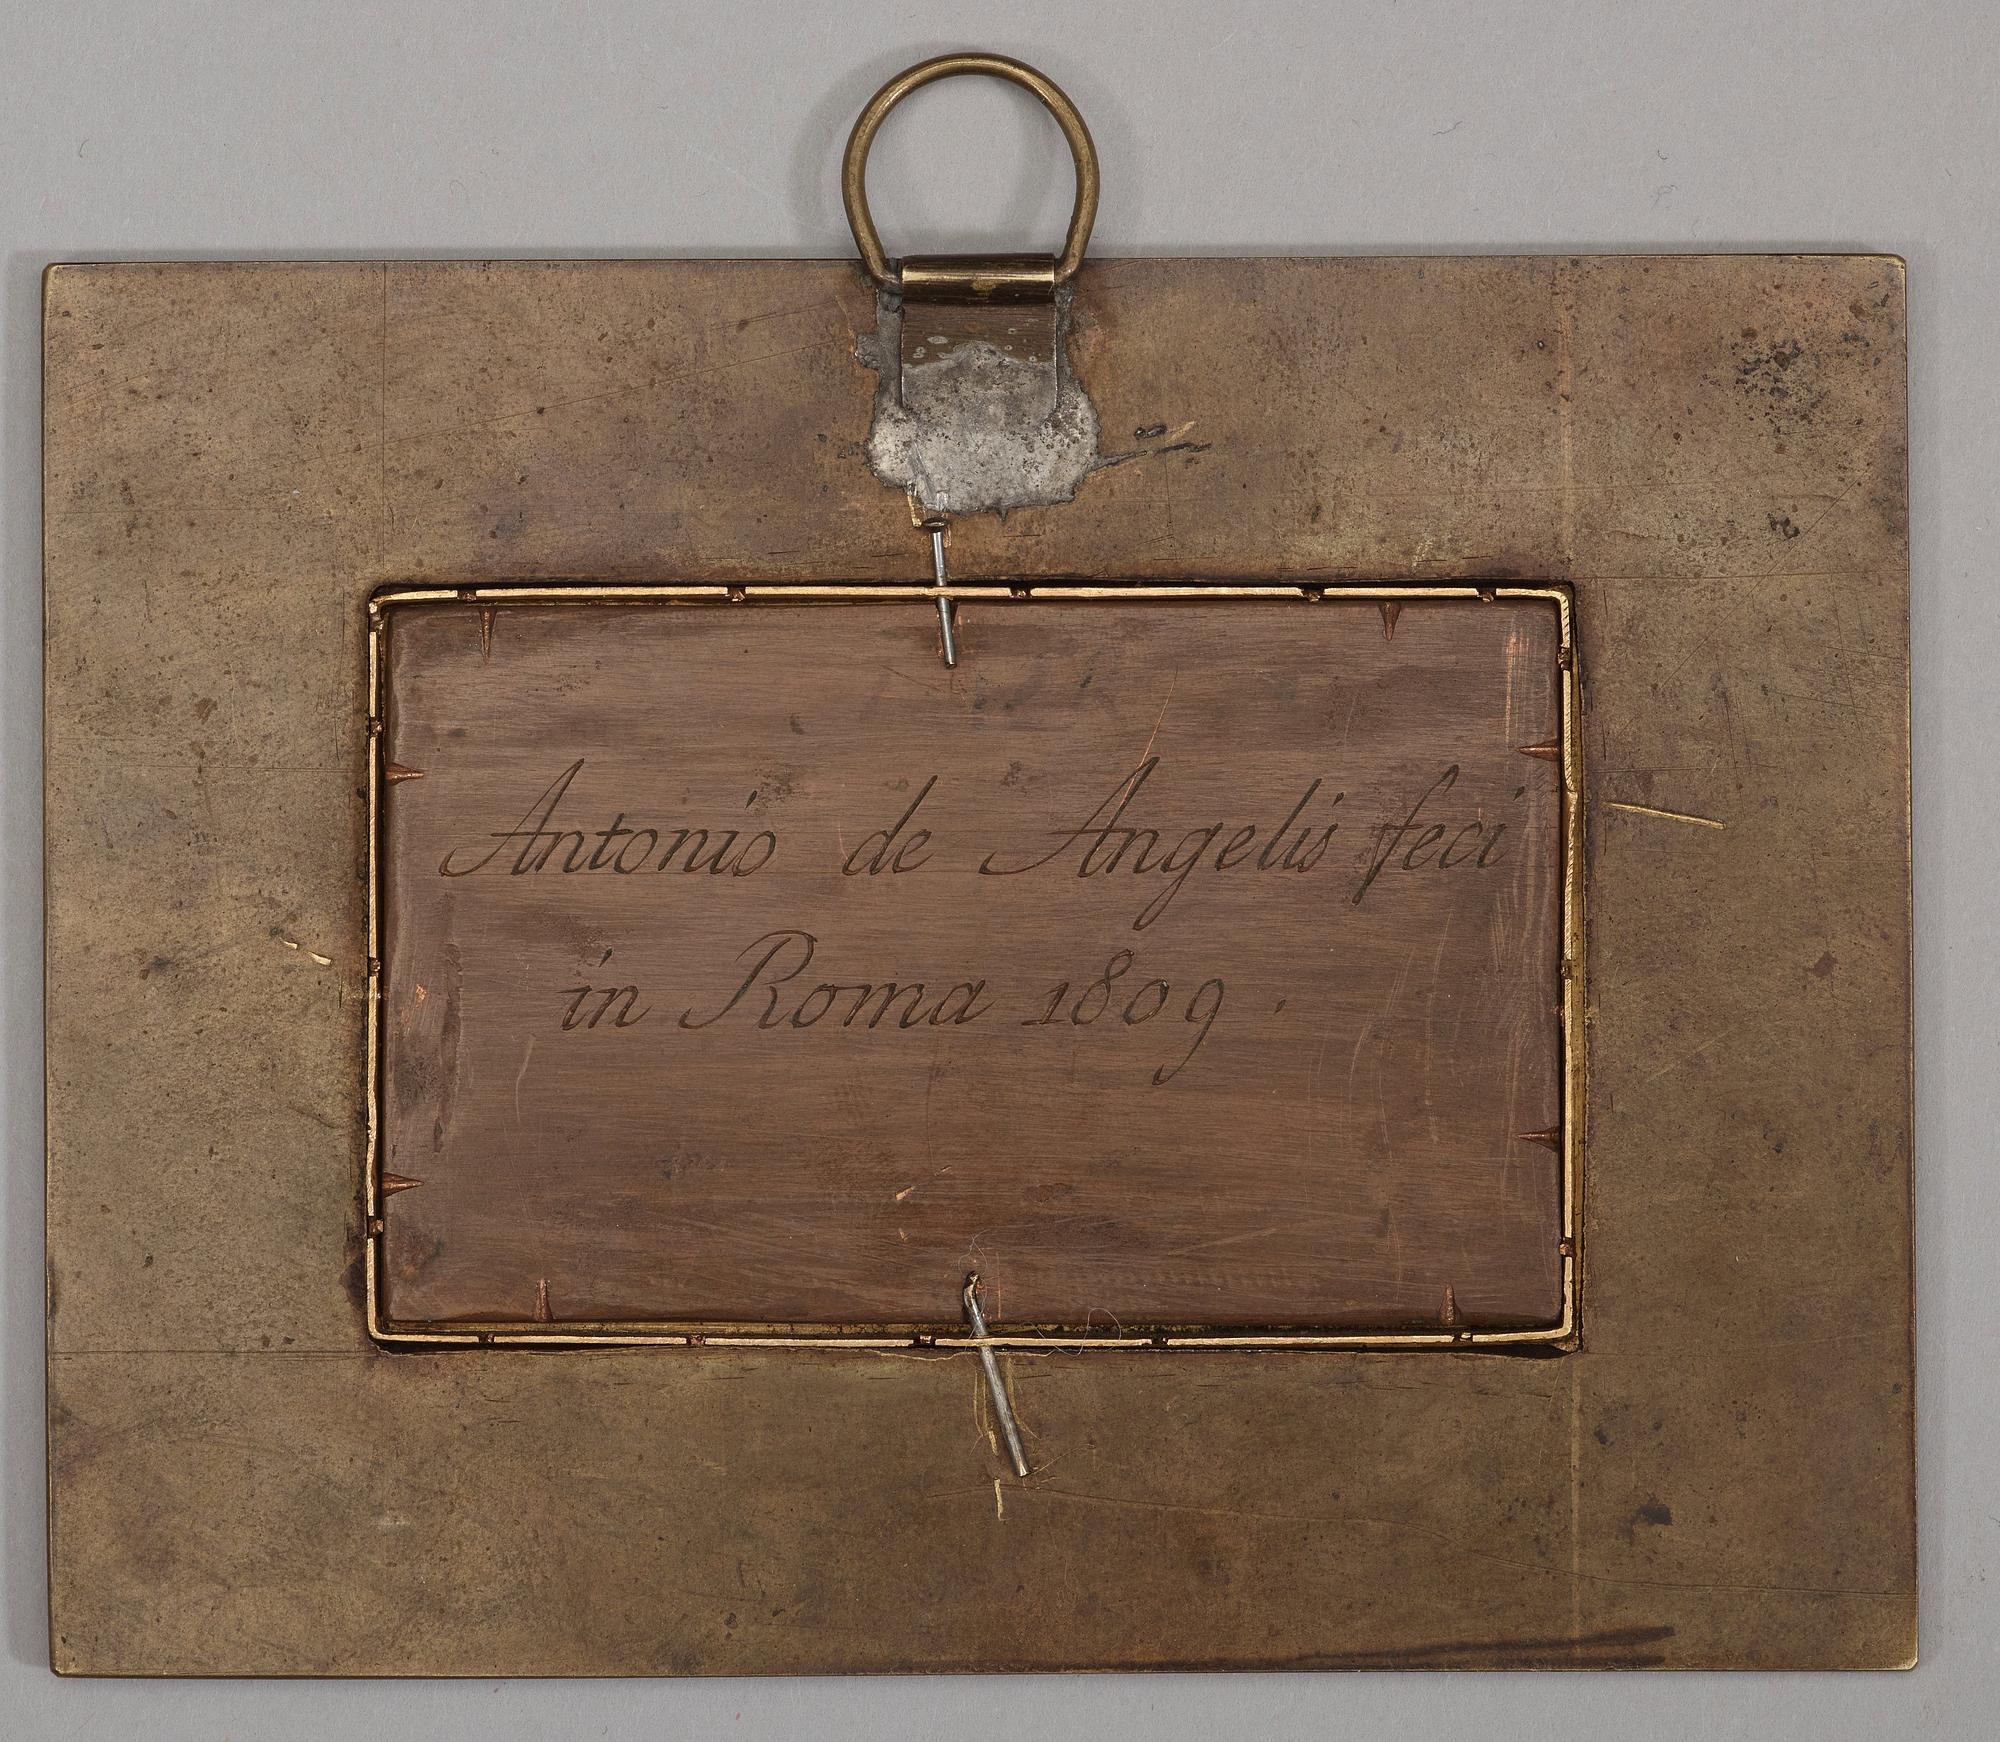 Antonio de Angelis feci
in Roma 1809.